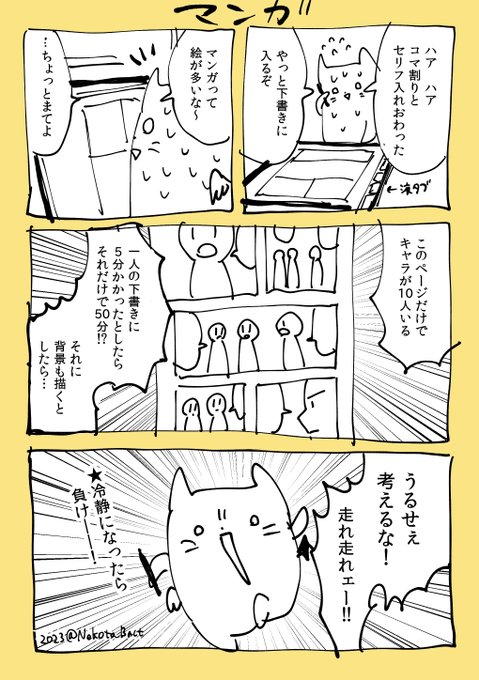 マンガ
ハア　ハア
コマ割りと
セリフ入れおわった
やっと下書きに
入るぞ
←液タブ
マンガって
絵が多いな〜
…ちょっとまてよ
このページだけで
キャラが10人いる
一人の下書きに
5分かかったとしたら
それだけで50分!?
それに
背景も描くと
したら…
うるせぇ
考えるな！
走れ走れェー!!
★冷静になったら
負けーー！
2023@NekotaBact